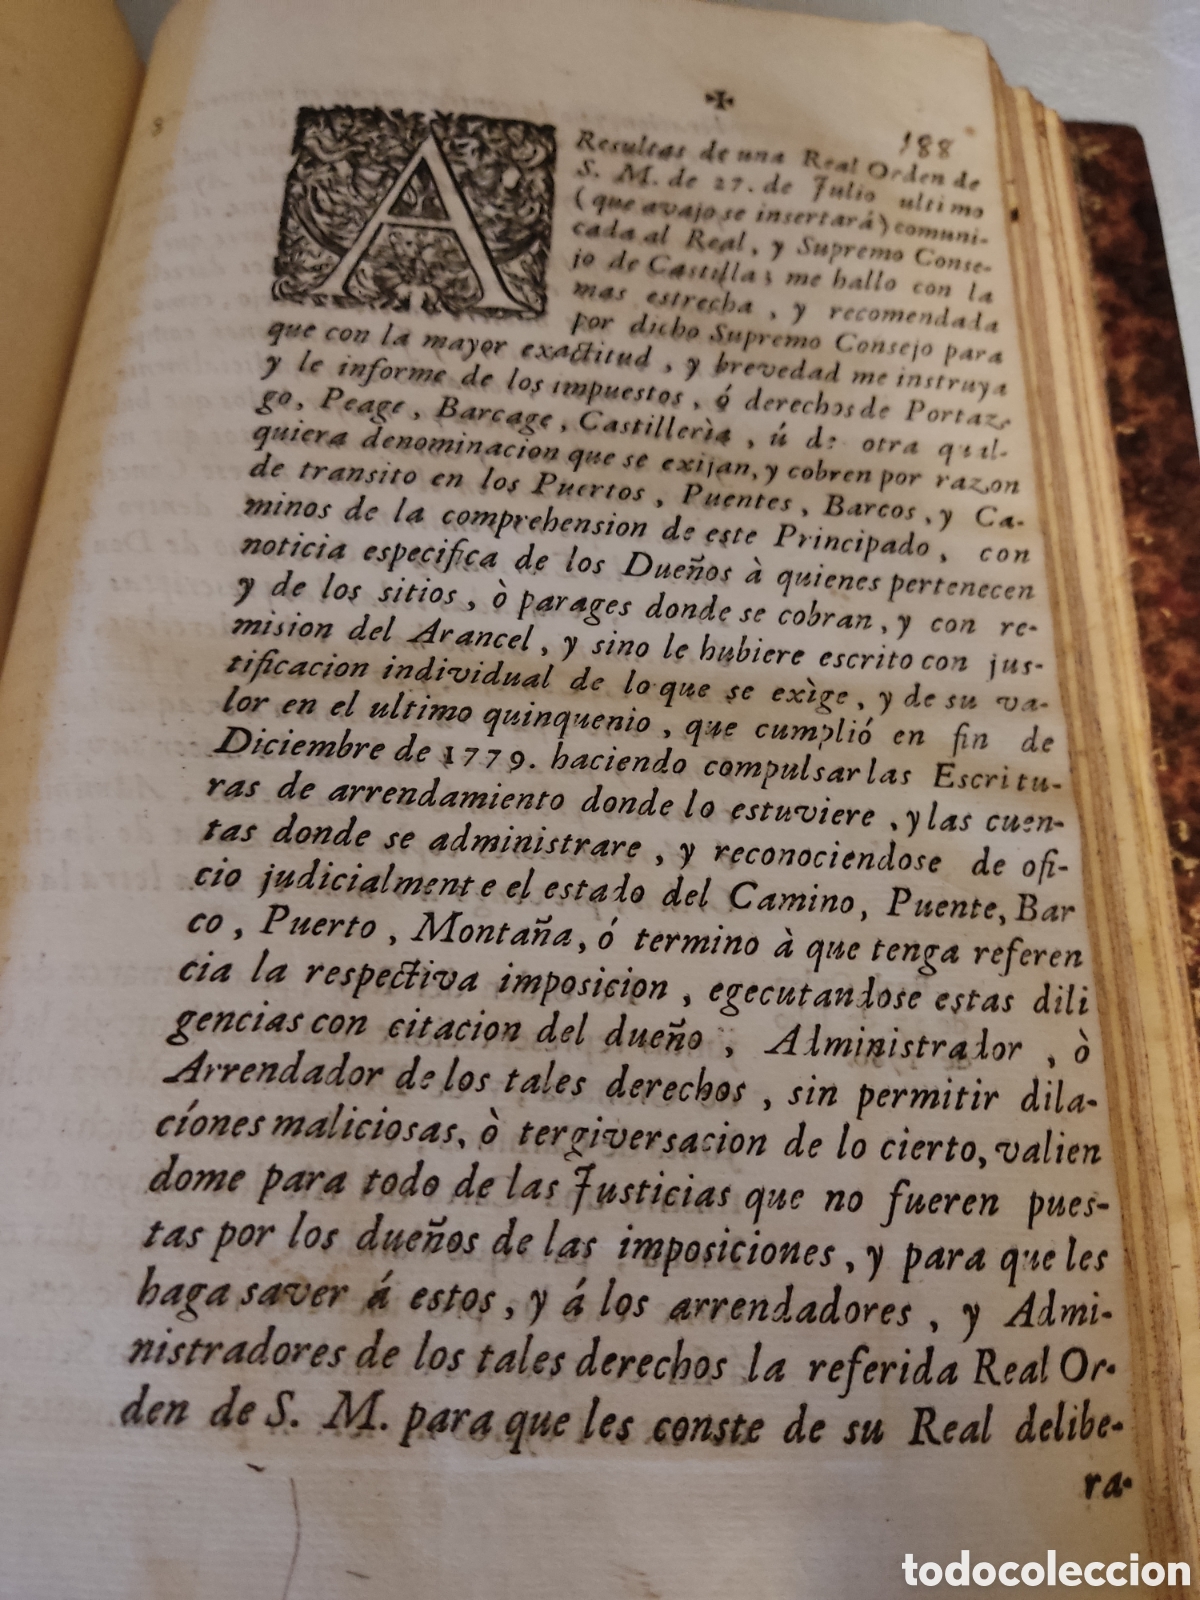 ✠
188
A
Resultas de una Real Orden de
S. M. de 27. de Julio ultimo
(que avajo se insertará) comuni-
cada al Real, y Supremo Conse-
jo de Castilla; me hallo con la
mas estrecha, y recomendada
por dicho Supremo Consejo para
que con la mayor exactitud, y brevedad me instruya
y le informe de los impuestos, ó derechos de Portaz-
go, Peage, Barcage, Castillerìa, ú de otra qual-
quiera denominacion que se exijan, y cobren por razon
de transito en los Puertos, Puentes, Barcos, y Ca-
minos de la comprehension de este Principado, con
noticia especifica de los Dueños à quienes pertenecen
y de los sitios, ò parages donde se cobran, y con re-
mision del Arancel, y sino le hubiere escrito con jus-
tificacion individual de lo que se exìge, y de su va-
lor en el ultimo quinquenio, que cumplió en fin de
Diciembre de 1779. haciendo compulsar las Escritu-
ras de arrendamiento donde lo estuviere, y las cuen-
tas donde se administrare, y reconociendose de ofi-
cio judicialmente el estado del Camino, Puente, Bar
co, Puerto, Montaña, ó termino à que tenga referen
cia la respectiva imposicion, egecutandose estas dili
gencias con citacion del dueño, Administrador, ò
Arrendador de los tales derechos, sin permitir dila-
cíones maliciosas, ò tergiversacion de lo cierto, valien
dome para todo de las Justicias que no fueren pues-
tas por los dueños de las imposiciones, y para que les
haga saver á estos, y á los arrendadores, y Admi-
nistradores de los tales derechos la referida Real Or-
den de S. M. para que les conste de su Real delibe-
ra-
todocoleccion